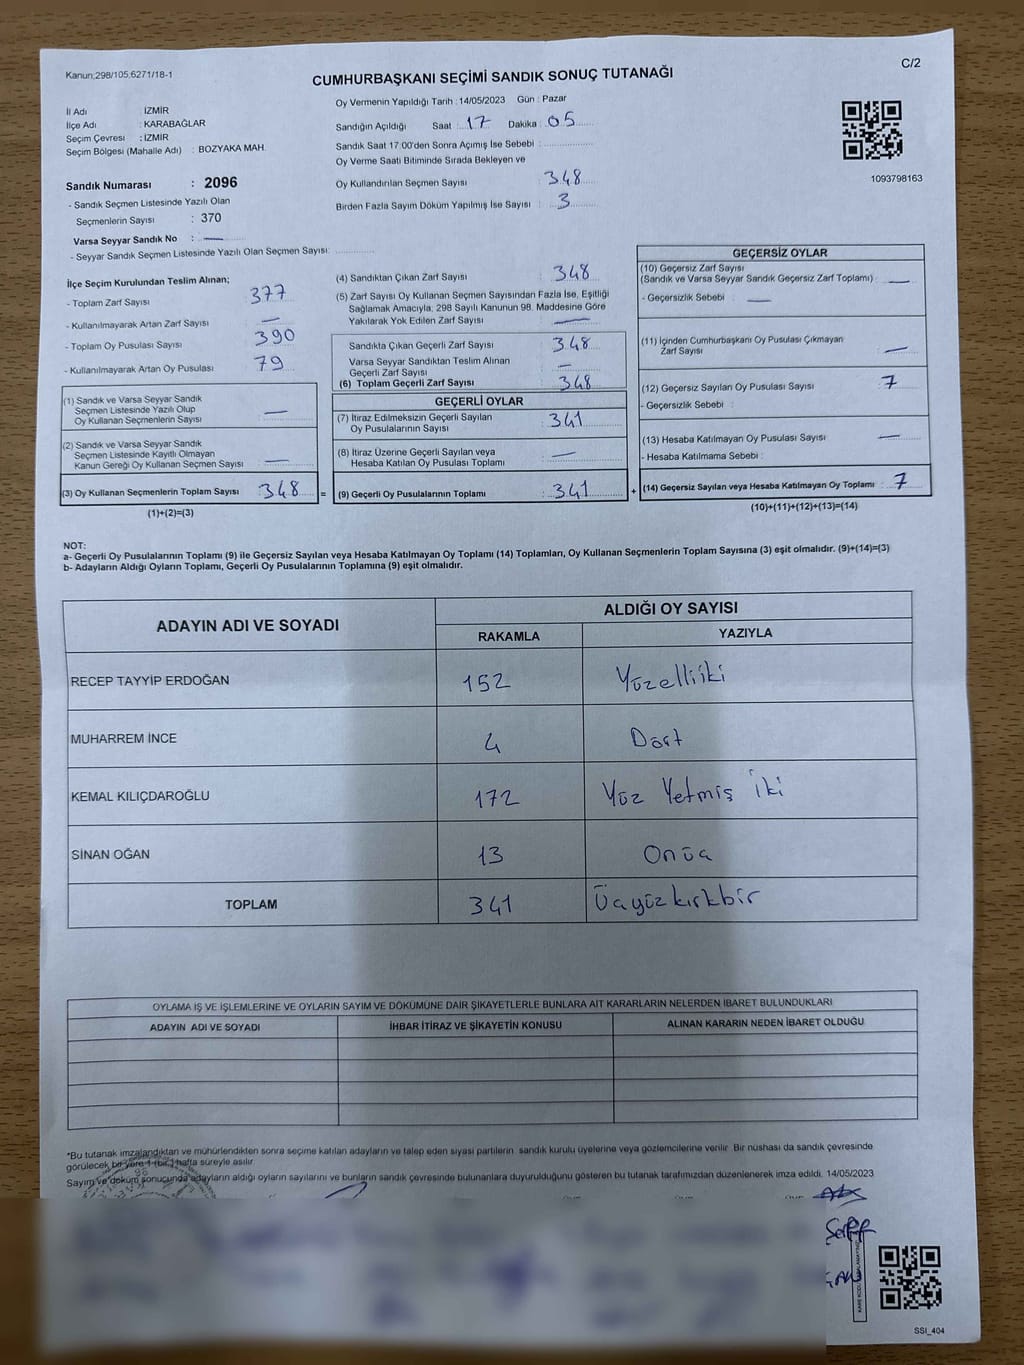 Kanun;298/105,6271/18-1
C/2
CUMHURBAŞKANI SEÇİMİ SANDIK SONUÇ TUTANAĞI
İl Adı : İZMİR
İlçe Adı : KARABAĞLAR
Seçim Çevresi : İZMİR
Seçim Bölgesi (Mahalle Adı) : BOZYAKA MAH.
Sandık Numarası : 2096
- Sandık Seçmen Listesinde Yazılı Olan
Seçmenlerin Sayısı : 370
Varsa Seyyar Sandık No : —
- Seyyar Sandık Seçmen Listesinde Yazılı Olan Seçmen Sayısı:
Oy Vermenin Yapıldığı Tarih : 14/05/2023 Gün : Pazar
Sandığın Açıldığı Saat : 17 Dakika : 05
Sandık Saat 17.00'den Sonra Açımış İse Sebebi :
Oy Verme Saati Bitiminde Sırada Bekleyen ve
Oy Kullandırılan Seçmen Sayısı : 348
Birden Fazla Sayım Döküm Yapılmış İse Sayısı : 3
1093798163
İlçe Seçim Kurulundan Teslim Alınan;
- Toplam Zarf Sayısı 377
- Kullanılmayarak Artan Zarf Sayısı —
- Toplam Oy Pusulası Sayısı 390
- Kullanılmayarak Artan Oy Pusulası 79
(1) Sandık ve Varsa Seyyar Sandık
Seçmen Listesinde Yazılı Olup
Oy Kullanan Seçmenlerin Sayısı —
(2) Sandık ve Varsa Seyyar Sandık
Seçmen Listesinde Kayıtlı Olmayan
Kanun Gereği Oy Kullanan Seçmen Sayısı —
(3) Oy Kullanan Seçmenlerin Toplam Sayısı 348 =
(1)+(2)=(3)
(4) Sandıktan Çıkan Zarf Sayısı 348
(5) Zarf Sayısı Oy Kullanan Seçmen Sayısından Fazla İse, Eşitliği
Sağlamak Amacıyla; 298 Sayılı Kanunun 98. Maddesine Göre
Yakılarak Yok Edilen Zarf Sayısı —
Sandıkta Çıkan Geçerli Zarf Sayısı 348
Varsa Seyyar Sandıktan Teslim Alınan
Geçerli Zarf Sayısı —
(6) Toplam Geçerli Zarf Sayısı 348
GEÇERLİ OYLAR
(7) İtiraz Edilmeksizin Geçerli Sayılan
Oy Pusulalarının Sayısı 341
(8) İtiraz Üzerine Geçerli Sayılan veya
Hesaba Katılan Oy Pusulası Toplamı —
(9) Geçerli Oy Pusulalarının Toplamı : 341 +
GEÇERSİZ OYLAR
(10) Geçersiz Zarf Sayısı
(Sandık ve Varsa Seyyar Sandık Geçersiz Zarf Toplamı) —
- Geçersizlik Sebebi : —
(11) İçinden Cumhurbaşkanı Oy Pusulası Çıkmayan
Zarf Sayısı —
(12) Geçersiz Sayılan Oy Pusulası Sayısı 7
- Geçersizlik Sebebi :
(13) Hesaba Katılmayan Oy Pusulası Sayısı —
- Hesaba Katılmama Sebebi :
(14) Geçersiz Sayılan veya Hesaba Katılmayan Oy Toplamı : 7
(10)+(11)+(12)+(13)=(14)
NOT:
a- Geçerli Oy Pusulalarının Toplamı (9) ile Geçersiz Sayılan veya Hesaba Katılmayan Oy Toplamı (14) Toplamları, Oy Kullanan Seçmenlerin Toplam Sayısına (3) eşit olmalıdır. (9)+(14)=(3)
b- Adayların Aldığı Oyların Toplamı, Geçerli Oy Pusulalarının Toplamına (9) eşit olmalıdır.
ADAYIN ADI VE SOYADI
ALDIĞI OY SAYISI
RAKAMLA YAZIYLA
RECEP TAYYİP ERDOĞAN 152 Yüzelliiki
MUHARREM İNCE 4 Dört
KEMAL KILIÇDAROĞLU 172 Yüz Yetmiş İki
SİNAN OĞAN 13 Onüç
TOPLAM 341 Üçyüzkırkbir
OYLAMA İŞ VE İŞLEMLERİNE VE OYLARIN SAYIM VE DÖKÜMÜNE DAİR ŞİKAYETLERLE BUNLARA AİT KARARLARIN NELERDEN İBARET BULUNDUKLARI
ADAYIN ADI VE SOYADI İHBAR İTİRAZ VE ŞİKAYETİN KONUSU ALINAN KARARIN NEDEN İBARET OLDUĞU
*Bu tutanak imzalandıktan ve mühürlendikten sonra seçime katılan adayların ve talep eden siyasi partilerin sandık kurulu üyelerine veya gözlemcilerine verilir. Bir nüshası da sandık çevresinde
görülecek bir yere 1 (bir) hafta süreyle asılır.
Sayım ve döküm sonucunda adayların aldığı oyların sayılarını ve bunların sandık çevresinde bulunanlara duyurulduğunu gösteren bu tutanak tarafımızdan düzenlenerek imza edildi. 14/05/2023
SSI_404